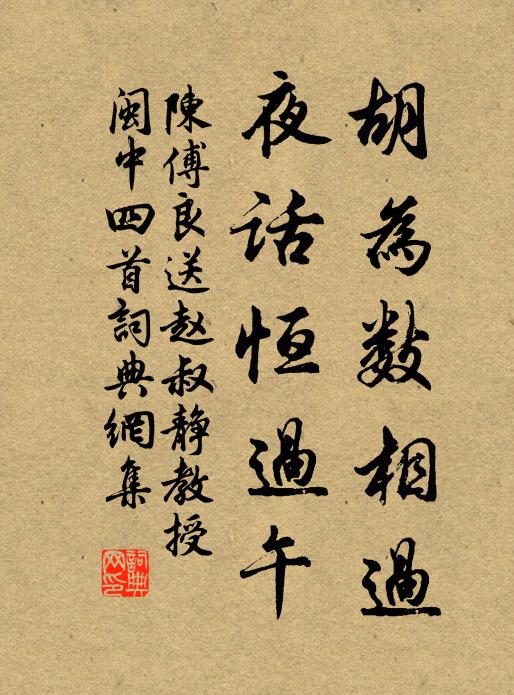 胡為數相過
夜話恒過午
陳傅良送赵叔静教授
閩中四首詞典網集
詞典网印